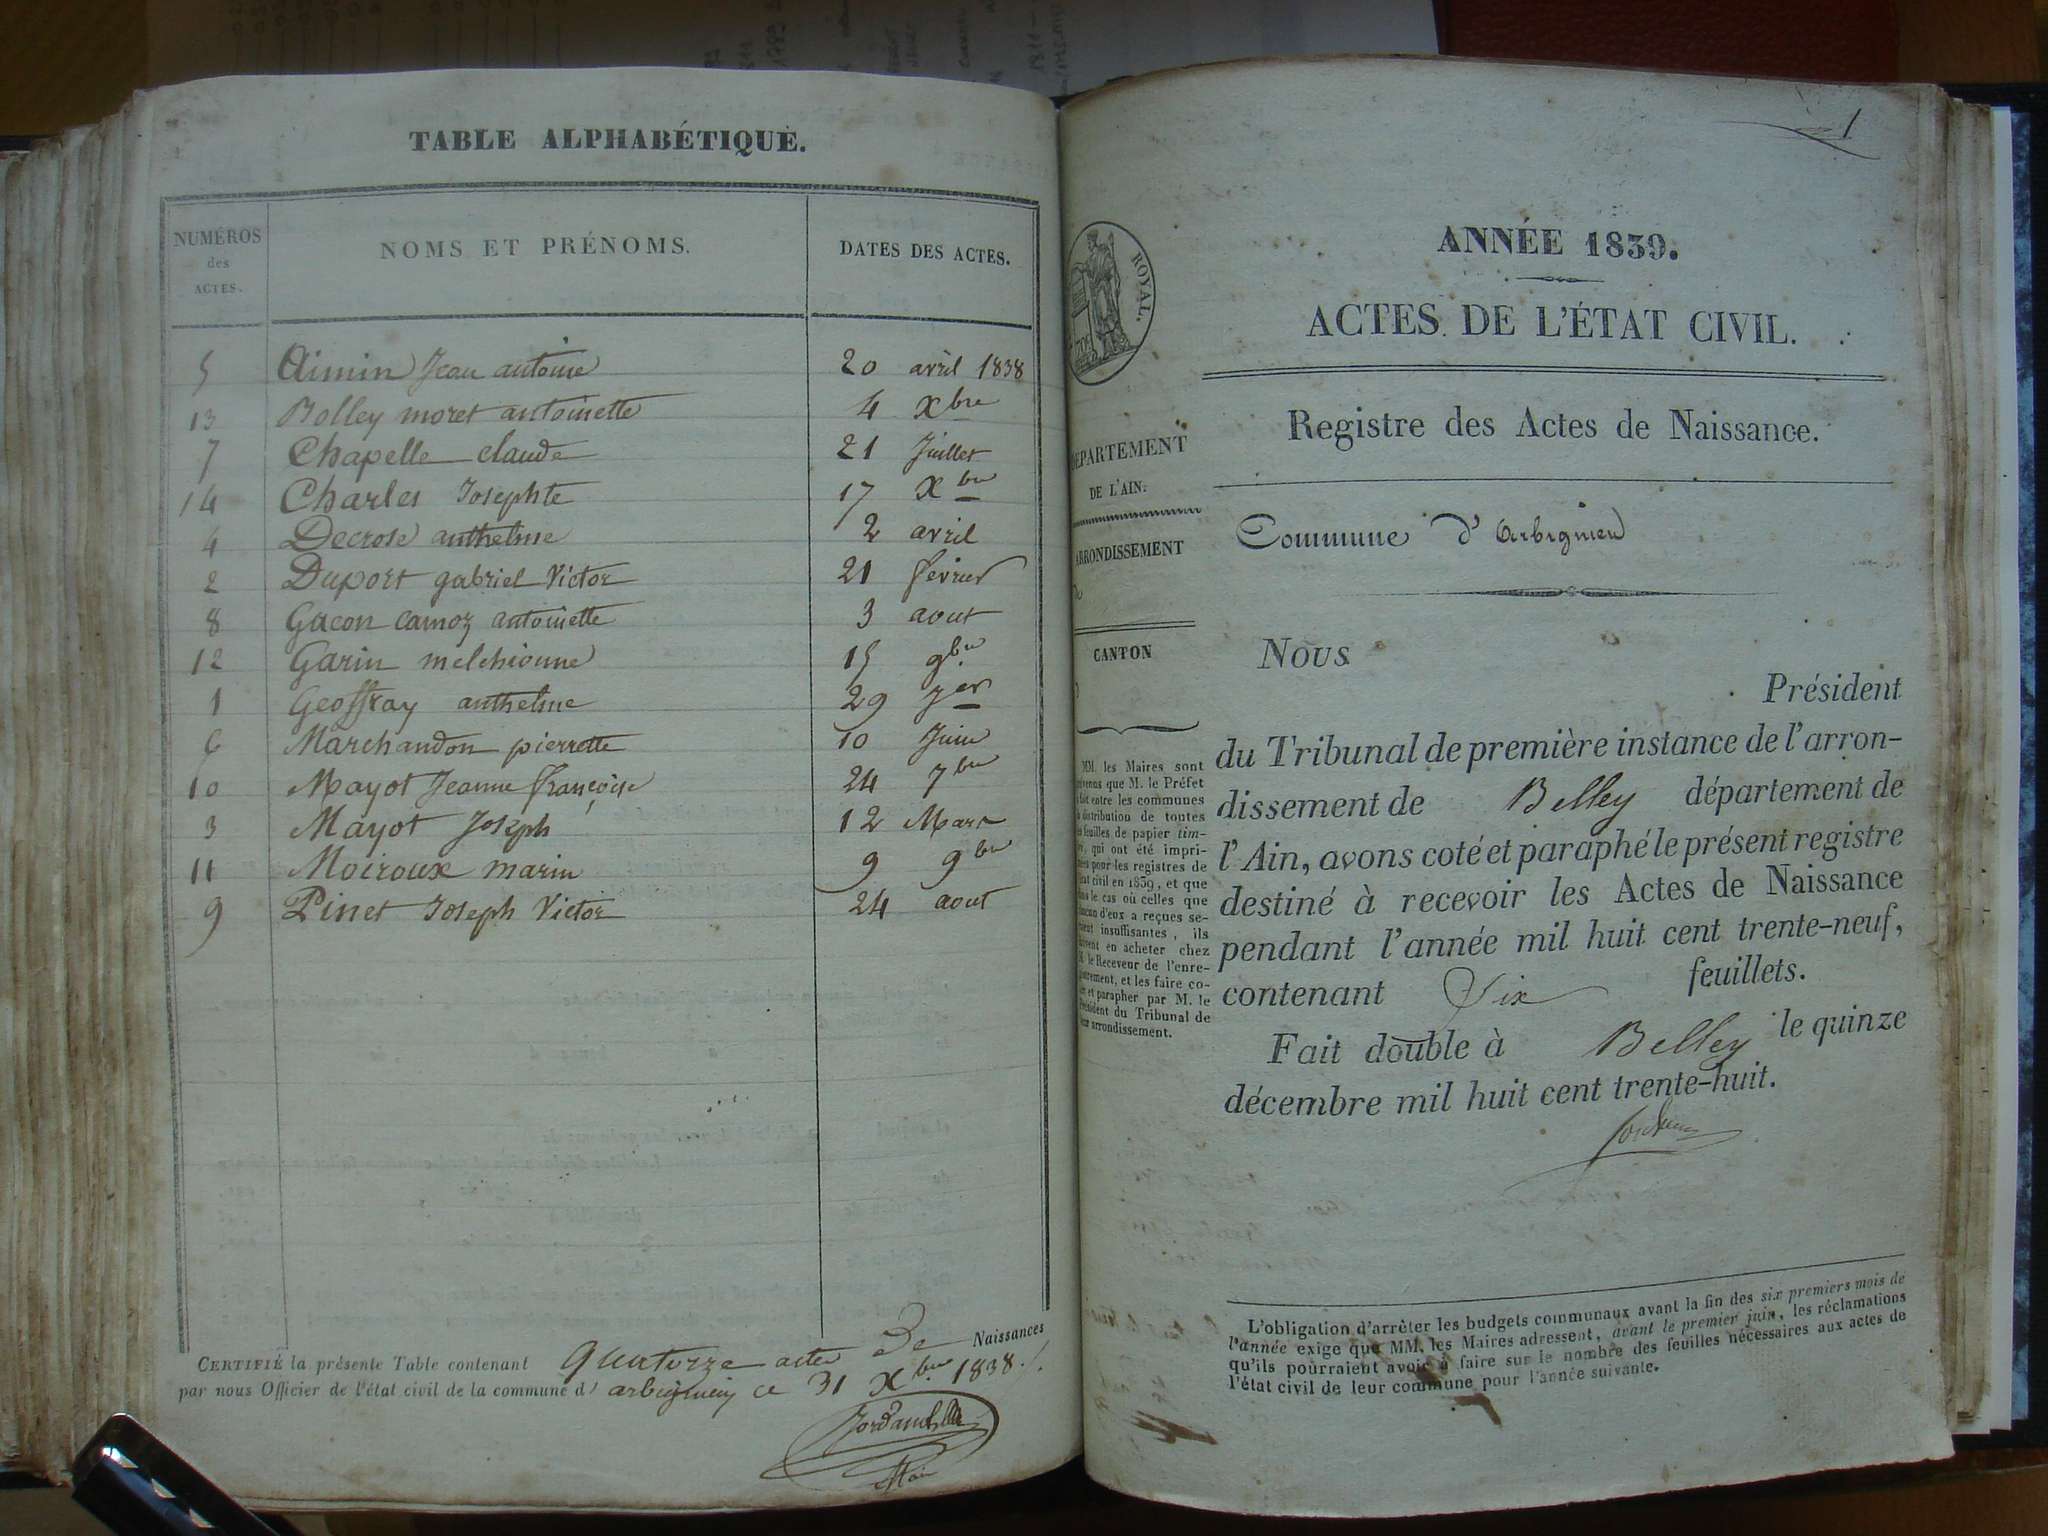 TABLE ALPHABÉTIQUE.
NUMÉROS des ACTES. NOMS ET PRÉNOMS. DATES DES ACTES.
5 Aimin Jean antoine 20 avril 1838
13 Bolley moret antoinette 4 Xbre
7 Chapelle claude 21 Juillet
14 Charles Josephte 17 Xbre
4 Decrose anthelme 2 avril
2 Duport gabriel Victor 21 fevrier
8 Gacon camoz antoinette 3 aout
12 Garin melchionne 15 9bre
1 Geoffray anthelme 29 Jer
6 Marchandon pierrette 10 Juin
10 Mayot Jeanne françoise 24 7bre
3 Mayot Joseph 12 Mars
11 Moiroux marin 9 9bre
9 Pinet Joseph Victor 24 aout
CERTIFIÉ la présente Table contenant quatorze actes De Naissances
par nous Officier de l'état civil de la commune d' arbignieu ce 31 Xbre 1838.
1
ROYAL.
ANNÉE 1839.
ACTES DE L'ÉTAT CIVIL.
Registre des Actes de Naissance.
DÉPARTEMENT
DE L'AIN.
Commune d'Arbignieu
ARRONDISSEMENT
CANTON
Nous
Président
du Tribunal de première instance de l'arron-
dissement de Belley département de
l'Ain, avons coté et paraphé le présent registre
destiné à recevoir les Actes de Naissance
pendant l'année mil huit cent trente-neuf,
contenant Six feuillets.
Fait double à Belley le quinze
décembre mil huit cent trente-huit.
MM. les Maires sont
que M. le Préfet
fait entre les communes
distribution de toutes
feuilles de papier tim-
qui ont été impri-
pour les registres de
civil en 1839, et que
le cas où celles que
d'eux a reçues se-
insuffisantes, ils
en acheter chez
le Receveur de l'enre-
et les faire co-
et parapher par M. le
Président du Tribunal de
arrondissement.
L'obligation d'arrêter les budgets communaux avant la fin des six premiers mois de
l'année exige que MM. les Maires adressent, avant le premier juin, les réclamations
qu'ils pourraient avoir à faire sur le nombre des feuilles nécessaires aux actes de
l'état civil de leur commune pour l'année suivante.